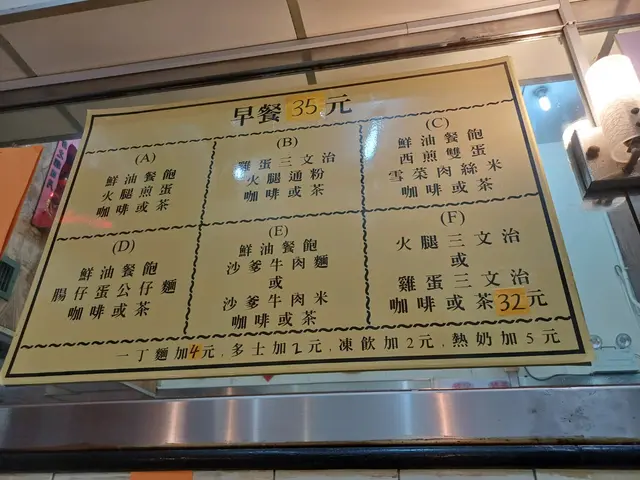 早餐35元
(A)
鮮油餐飽
火腿煎蛋
咖啡或茶
(B)
雞蛋三文治
火腿通粉
咖啡或茶
(C)
鮮油餐飽
西煎雙蛋
雪菜肉絲米
咖啡或茶
(D)
鮮油餐飽
腸仔蛋公仔麵
咖啡或茶
(E)
鮮油餐飽
沙爹牛肉麵
或
沙爹牛肉米
咖啡或茶
(F)
火腿三文治
或
雞蛋三文治
咖啡或茶32元
一丁麵加4元.多士加2元.凍飲加2元.熱奶加5元